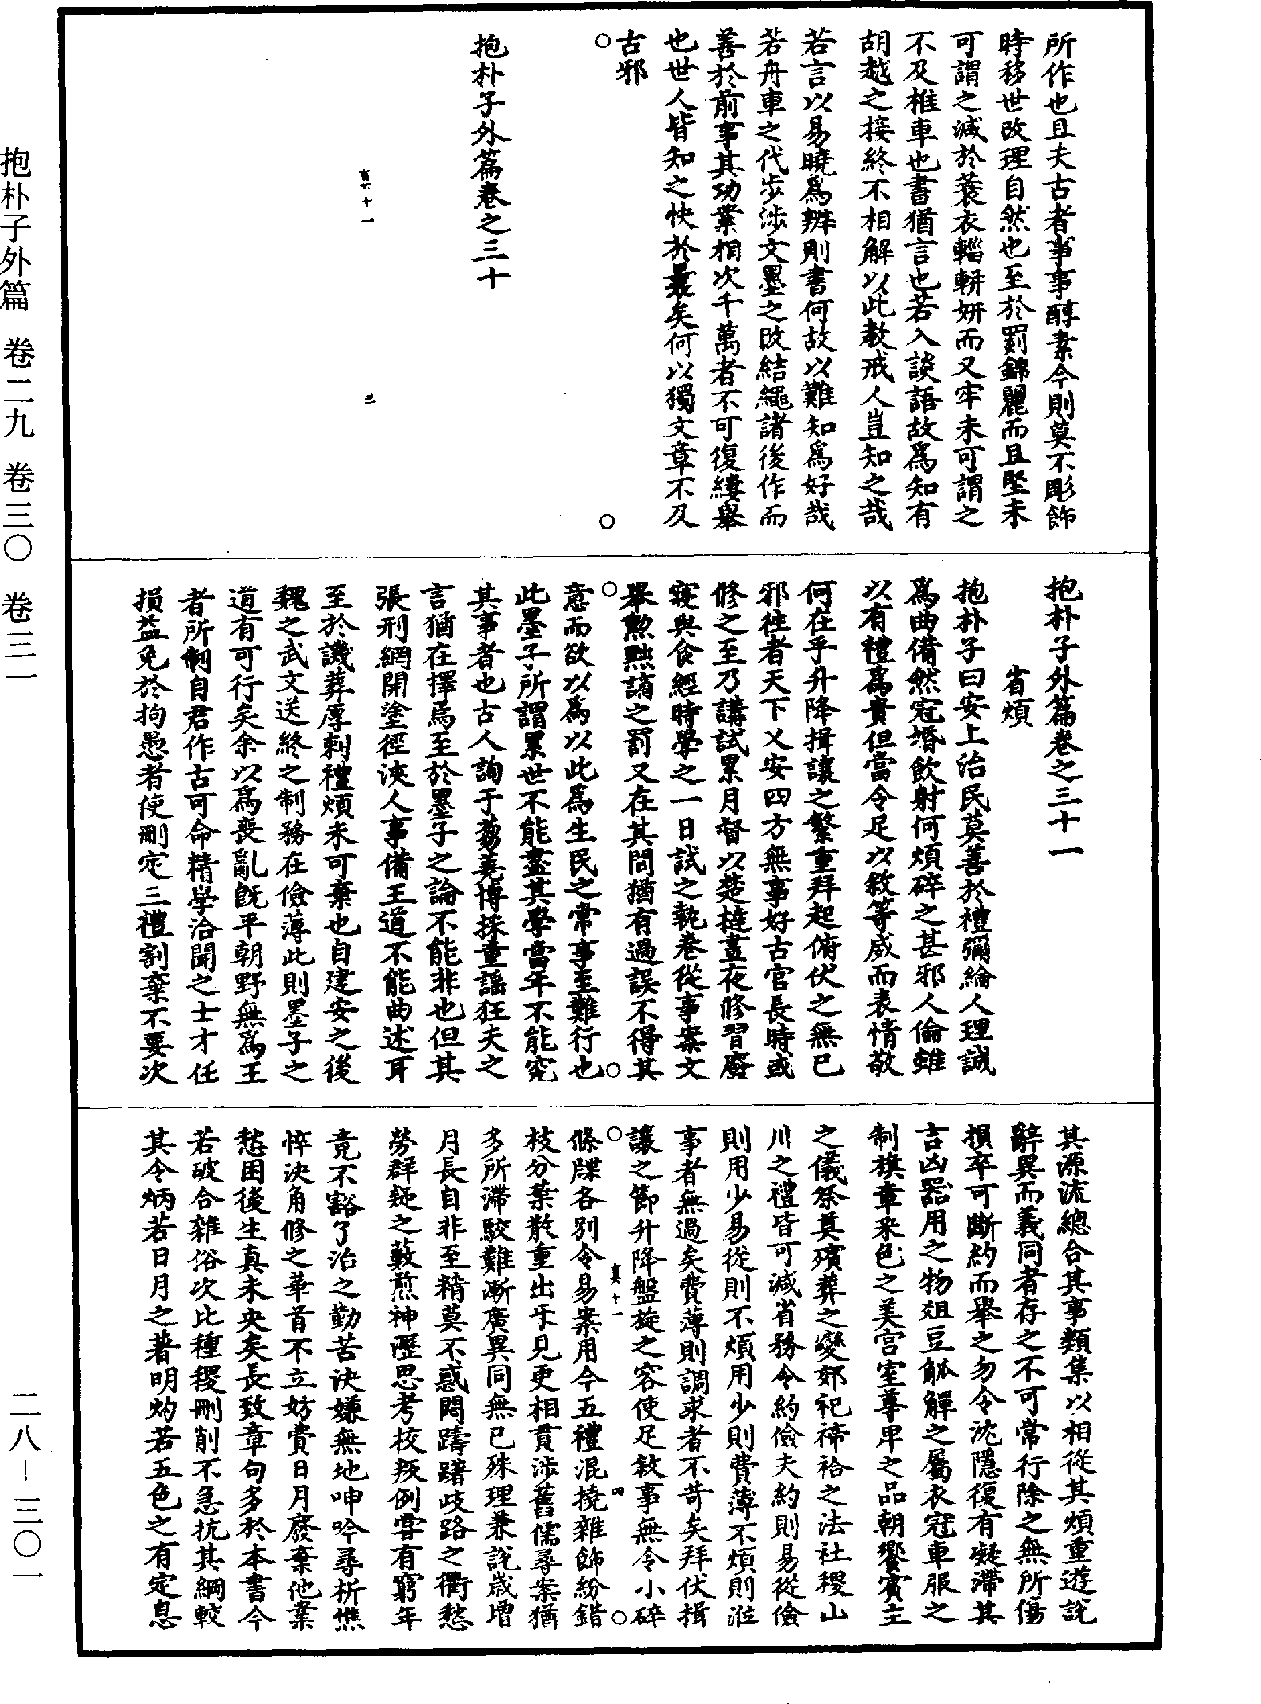 所作也且夫古者事事醇素今則莫不彫飾
時移世改理自然也至於罽錦麗而且堅未
可謂之減於蓑衣輜軿妍而又牢未可謂之
不及椎車也書猶言也若入談語故爲知有
胡越之接終不相解以此教戒人豈知之哉
若言以易曉爲辨則書何故以難知爲好哉
若舟車之代步涉文墨之改結繩諸後作而
善於前事其功業相次千萬者不可復縷舉
也世人皆知之快於曩矣何以獨文章不及
古邪
抱朴子外篇卷之三十
抱朴子外篇卷之三十一
省煩
抱朴子曰安上治民莫善於禮彌綸人理誠
爲曲備然冠婚飲射何煩碎之甚邪人倫雖
以有禮爲貴但當令足以敘等威而表情敬
何在乎升降揖讓之繁重拜起俯伏之無已
邪往者天下乂安四方無事好古官長時或
修之至乃講試累月督以楚撻晝夜修習廢
寢與食經時學之一日試之執卷從事案文
舉動黜謫之罰又在其間猶有過誤不得其
意而欲以爲以此爲生民之常事至難行也
此墨子所謂累世不能盡其學當年不能究
其事者也古人詢于芻蕘博採童謠狂夫之
言猶在擇焉至於墨子之論不能非也但其
張刑網開塗徑浹人事備王道不能曲述耳
至於譏葬厚刺禮煩未可棄也自建安之後
魏之武文送終之制務在儉薄此則墨子之
道有可行矣余以爲喪亂既平朝野無爲王
者所制自君作古可命精學洽聞之士才任
損益免於拘愚者使刪定三禮割棄不要次
其源流總合其事類集以相從其煩重遊說
辭異而義同者存之不可常行除之無所傷
損卒可斷約而舉之勿令沈隱復有凝滯其
吉凶器用之物俎豆觚觶之屬衣冠車服之
制旗章采色之美宮室尊卑之品朝饗賓主
之儀祭奠殯葬之變郊祀禘祫之法社稷山
川之禮皆可減省務令約儉夫約則易從儉
則用少易從則不煩用少則費薄不煩則涖
事者無過矣費薄則調求者不苛矣拜伏揖
讓之節升降盤旋之容使足敘事無令小碎
條牒各別令易案用今五禮混撓雜飾紛錯
枝分葉散重出互見更相貫涉舊儒尋案猶
多所滯駮難漸廣異同無已殊理兼說歲增
月長自非至精莫不惑悶躊躇歧路之衢愁
勞群疑之藪煎神瀝思考校叛例嘗有窮年
竟不豁了治之勤苦決嫌無地呻吟尋析憔
悴決角修之華首不立妨費日月廢棄他業
愁困後生真未央矣長致章句多於本書今
若破合雜俗次比種稷刪削不急抗其綱較
其令炳若日月之著明灼若五色之有定息
抱朴子外篇 卷二九 卷三〇 卷三一
二八－三〇一